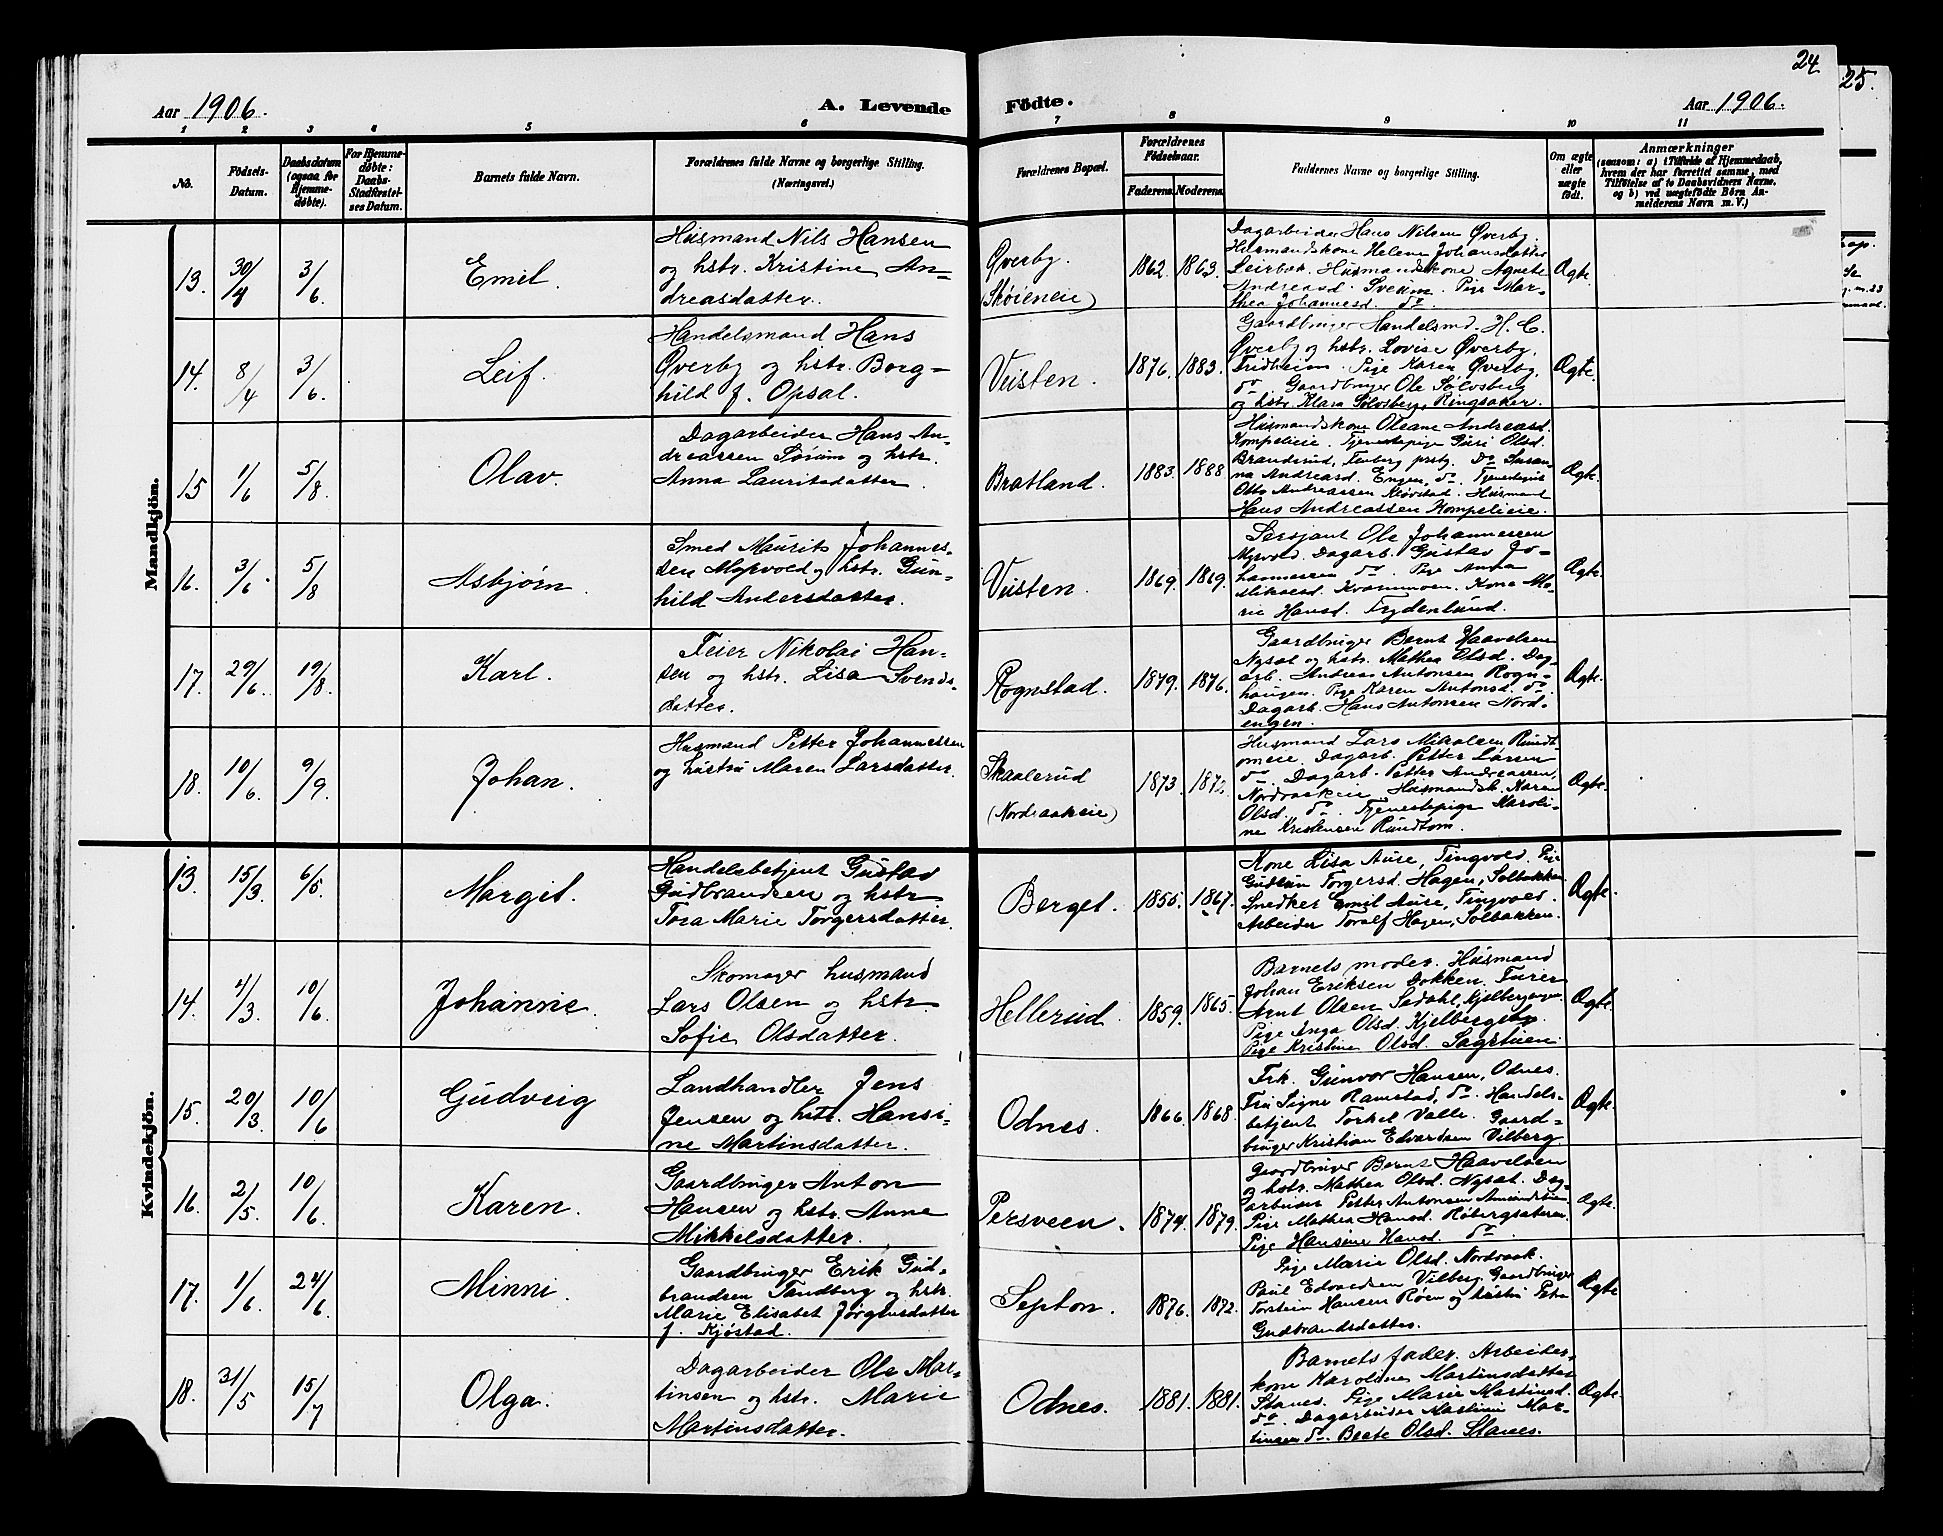 24
25.
Aar 1906.
A. Levende
Fødte.
Aar 1906.
1 2 3 4 5 6 7 8 9 10 11
No.
Fødsels-
Datum.
Daabsdatum
(ogsaa for
Hjemme-
døbte).
For Hjemme-
døbte:
Daabs-
Stadfæstel-
ses Datum.
Barnets fulde Navn.
Forældrenes fulde Navne og borgerlige Stilling.
(Næringsvei.)
Forældrenes Bopæl.
Forældrenes
Fødselsaar.
Faderens. Moderens.
Faddernes Navne og borgerlige Stilling.
Om ægte
eller
uægte
født.
Anmærkninger
(saasom: a) i Tilfælde af Hjemmedaab,
hvem der har forrettet samme, med
Tilføielse af to Daabsvidners Navne,
og b) ved uægtefødte Børn An-
melderens Navn m. V.)
Mandkjön.
13. 30/4 3/6 Emil.
Husmand Nils Hansen
og hstr. Kristine An-
dreasdatter.
Øverby.
(Skøieneie)
1862. 1863.
Dagarbeider Hans Nilsen Øverby.
Husmandskone Helene Johansdatter
Leirbæk. Husmandskone Agnete
Andreasd. Sveum. Pige Mar-
thea Johannesd. do.
Ægte.
14. 8/4 3/6 Leif.
Handelsmand Hans
Øverby og hstr. Borg-
hild f. Opsal.
Veisten.
1876. 1883.
Gaardbruger Handelsmd. H. C.
Øverby og hstr. Lovise Øverby,
Fridheim. Pige Karen Øverby,
do. Gaardbruger Ole Sølvsberg
og hstr. Klara Sølvsberg, Ringsaker.
Ægte.
15 1/6 5/8 Olav.
Dagarbeider Hans An-
dreassen Sørum og hstr.
Anna Lauritsdatter.
Bratland.
1883. 1888
Husmandskone Oleane Andreasd.
Kompelieie. Tjenestepige Guri Olsd.
Branderud, Fluberg prstg. Do Susan-
na Andreasd. Engen, do. Tjenestegut
Otto Andreassen Kløvstad. Husmand
Hans Andreassen Kompelieie.
Ægte.
16. 3/6. 5/8 Asbjørn
Smed Maurits Johannes-
sen Myrvold og hstr. Gun-
hild Andersdatter.
Veisten.
1869. 1869.
Sersjant Ole Johannessen
Myrvold. Dagarb. Gustav Jo-
hannessen do. Pige Anna
Mikaelsd. Kvammen. Kone Ma-
rie Hansd. Frydenlund.
Ægte.
17. 29/6. 19/8. Karl.
Feier Nikolai Han-
sen og hstr. Lisa Svends-
datter.
Rognstad.
1879. 1876.
Gaardbruger Bernt Haavelsen
Nysæt og hstr. Mathea Olsd. Dag-
arb. Andreas Antonsen Rogn-
haugen. Pige Karen Antonsd. do.
Dagarb. Hans Antonsen Nord-
engen.
Ægte.
18. 10/6. 9/9. Johan.
Husmand Petter Johannessen
og hustru Maren Larsdatter.
Skaalerud
(Nordraakeie)
1873. 1872.
Husmand Lars Mikalsen Rundt-
omeie. Dagarb. Petter Larsen
do. Dagarb. Petter Andreassen,
Nordraakeie. Husmandsk. Karen
Olsd. do. Tjenestepige Karoli-
ne Kristensen Rundtom.
Ægte.
Kvindekjön.
13. 15/3. 6/5. Margit.
Handelsbetjent Gustav
Gudbrandsen og hstr.
Tora Marie Torgersdatter.
Berget.
1855. 1867.
Kone Lisa Aure, Tingvold. Pige
Gudrun Torgersd. Hagen, Solbakken
Snedker Emil Aure, Tingvold.
Arbeider Toralf Hagen, Solbakken.
Ægte.
14. 4/3. 10/6. Johanne.
Skomager husmand
Lars Olsen og hstr.
Sofie Olsdatter.
Hellerud.
1859. 1865.
Barnets moder. Husmand
Johan Eriksen Dokken. Furer
Arnt Olsen
Pige Inga Olsd.
Pige Kristine Olsd. Sagstuen.
Ægte.
15. 20/3. 10/6 Gudveig
Landhandler Jens
Jensen og hstr. Hansi-
ne Martinsdatter.
Odnes.
1866. 1868.
Frk. Gunvor Hansen, Odnes.
Fru Signe Ramstad, do. Handels-
betjent Torkel Valle. Gaard-
bruger Kristian Edvardsen Vilberg.
Ægte.
16. 2/5. 10/6. Karen.
Gaardbruger Anton
Hansen og hstr. Anne
Mikkelsdatter.
Persveen.
1874. 1879.
Gaardbruger Bernt Haavelsen
og hstr. Mathea Olsd. Nysæt. Dag-
arbeider Petter Antonsen
Pige Mathea Hansd.
Pige Hansine Hansd. do.
Ægte.
17. 1/6. 24/6 Minni.
Gaardbruger Erik Gud-
brandsen Tandberg og hstr.
Marie Elisabet Jørgensdatter
f. Kjøstad.
Septon.
1876. 1872.
Pige Marie Olsd. Nordraak.
Paul Edvardsen Vilberg. Gaardbruger
Torstein Hansen Røen og hustru Petra
Gudbrandsdatter.
Ægte
18. 31/5 15/7 Olga.
Dagarbeider Ole Mar-
tinsen og hstr. Marie
Martinsdatter.
Odnes.
1881. 1881.
Barnets fader. Arbeider-
kone Karoline Martinsdatter
Stanes. Pige Marie Martinsd.
do. Dagarbeider Martin Mar-
tinsen do. Beate Olsd. Stanes.
Ægte.